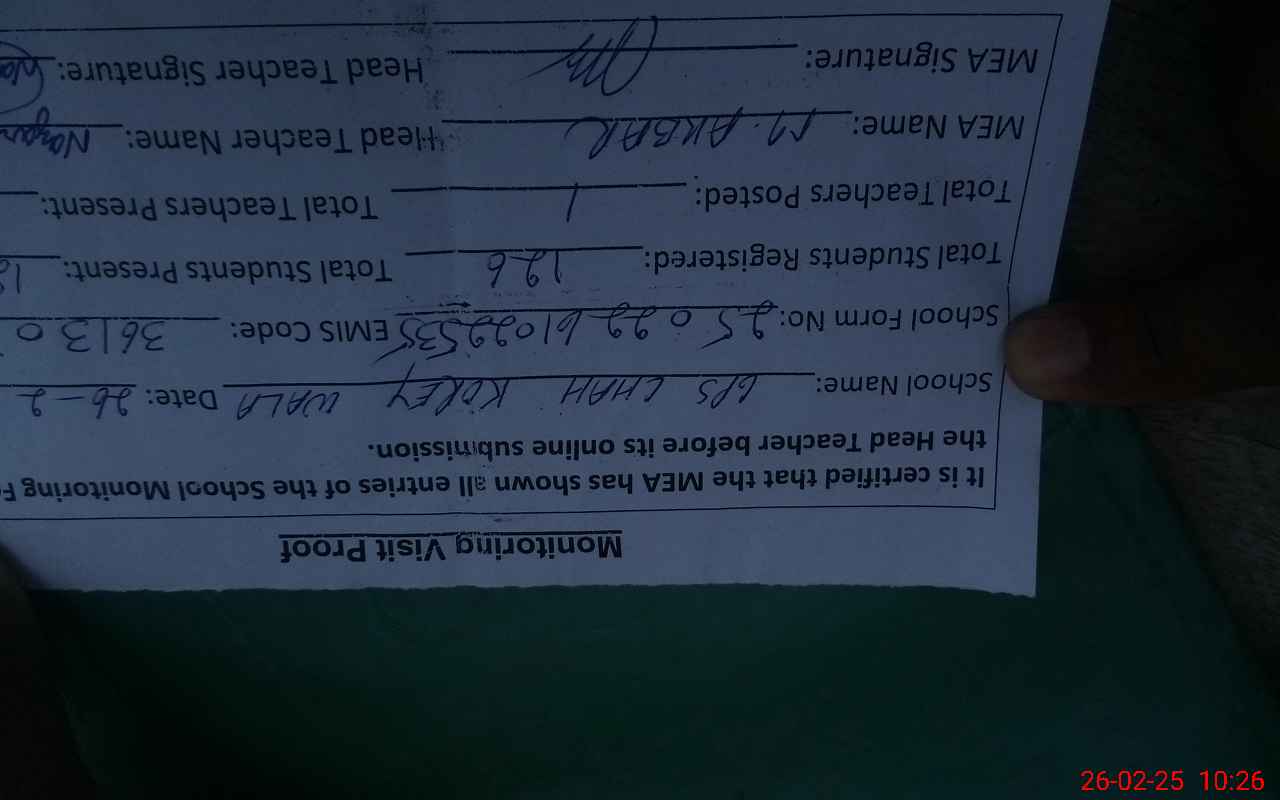 Monitoring Visit Proof
It is certified that the MEA has shown all entries of the School Monitoring F
the Head Teacher before its online submission.
School Name: GPS CHAH KOREY WALA Date: 26-2
School Form No: 25022261022535 EMIS Code: 36130
Total Students Registered: 126 Total Students Present: 1
Total Teachers Posted: 1 Total Teachers Present:
MEA Name: M. AKBAR Head Teacher Name:
MEA Signature: Head Teacher Signature:
26-02-25 10:26